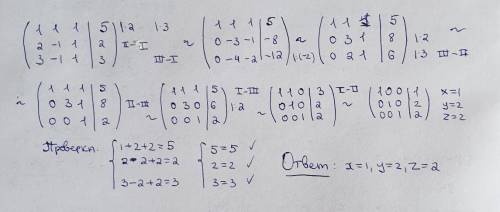 (1 1 1 | 5; 2 -1 1 | 2; 3 -1 1 | 3) |·2 |·3 II-I III-I ~ (1 1 1 | 5; 0 -3 -1 | -8; 0 -4 -2 | -12) |:(-2) ~ (1 1 1 | 5; 0 3 1 | 8; 0 2 1 | 6) |·2 |·3 III-II ~
~ (1 1 1 | 5; 0 3 1 | 8; 0 0 1 | 2) II-III ~ (1 1 1 | 5; 0 3 0 | 6; 0 0 1 | 2) I-III |:2 ~ (1 1 0 | 3; 0 1 0 | 2; 0 0 1 | 2) I-II ~ (1 0 0 | 1; 0 1 0 | 2; 0 0 1 | 2) x=1 y=2 z=2
Проверка: { 1+2+2=5 { 5=5 ✓
2-2+2=2 2=2 ✓ Ответ: x=1, y=2, z=2
3-2+2=3 3=3 ✓